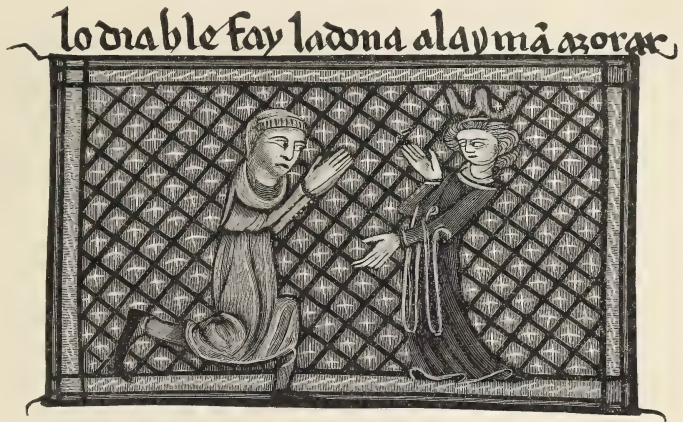 lo diable fay ladona alaymā azorar